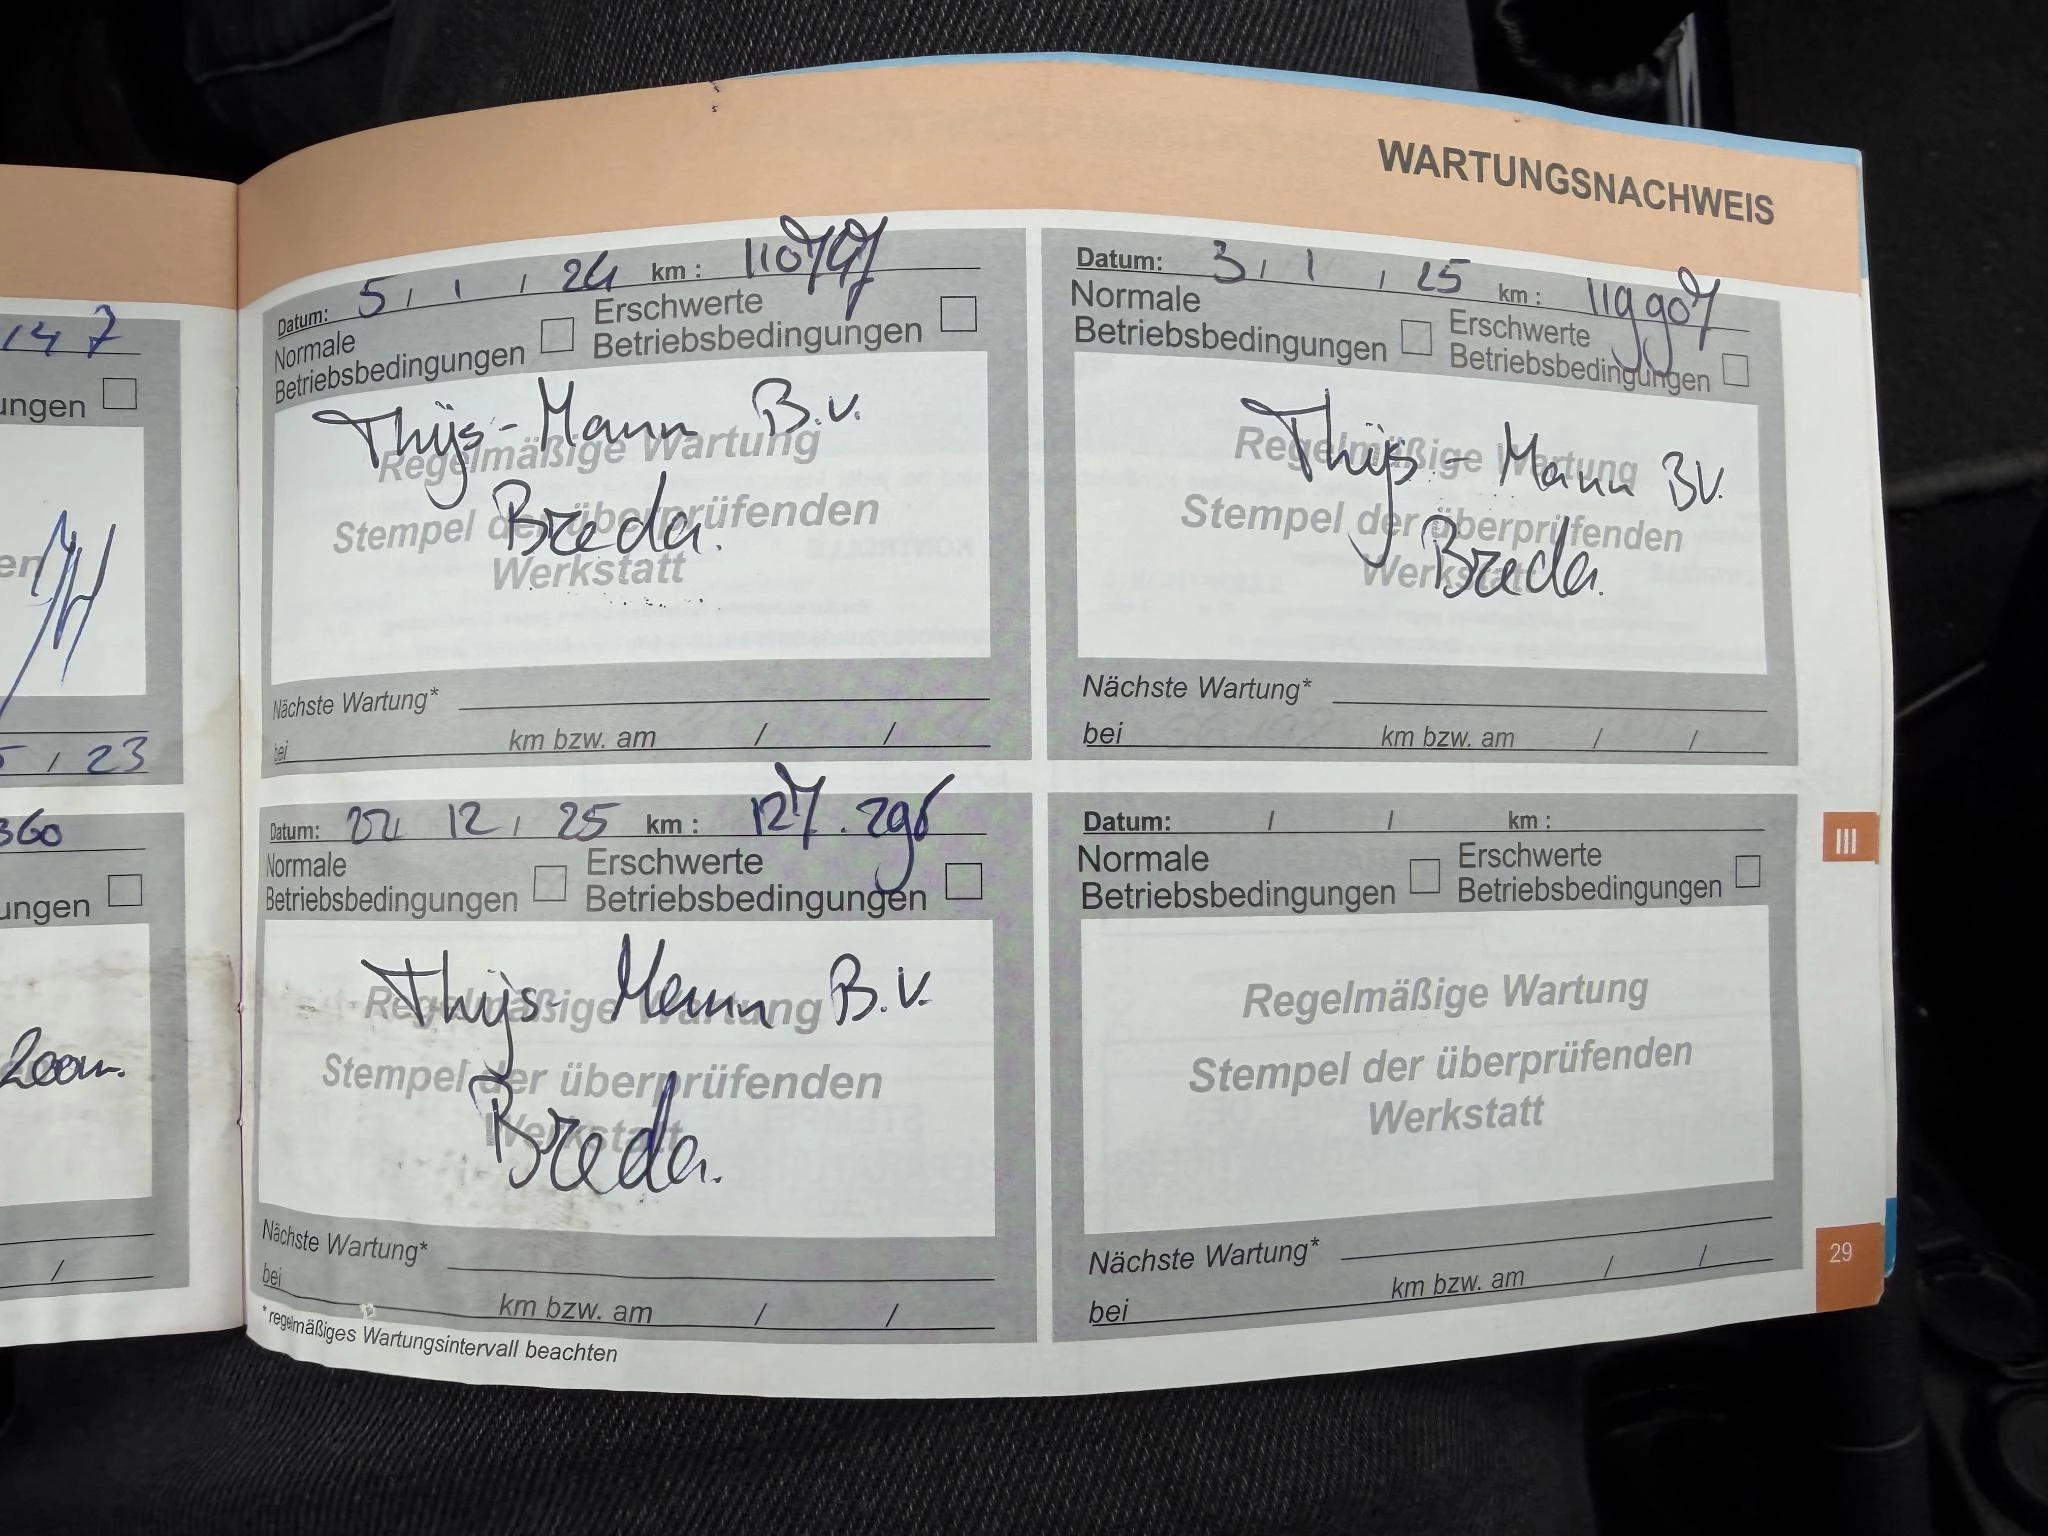 147
ungen
en
5 / 23
360
ungen
2001.
/
WARTUNGSNACHWEIS
Datum: 5 / 1 / 24 km : 110797
Normale Betriebsbedingungen
Erschwerte Betriebsbedingungen
Thijs-Mann B.V.
Breda.
Regelmäßige Wartung
Stempel der überprüfenden
Werkstatt
Nächste Wartung*
bei km bzw. am / /
Datum: 3 / 1 / 25 km : 119907
Normale Betriebsbedingungen
Erschwerte Betriebsbedingungen
Thijs-Mann BV.
Breda.
Regelmäßige Wartung
Stempel der überprüfenden
Werkstatt
Nächste Wartung*
bei km bzw. am / /
Datum: 22 12 / 25 km : 127.296
Normale Betriebsbedingungen
Erschwerte Betriebsbedingungen
Thijs-Mann B.V.
Breda.
Regelmäßige Wartung
Stempel der überprüfenden
Werkstatt
Nächste Wartung*
bei km bzw. am / /
* regelmäßiges Wartungsintervall beachten
Datum: / / km :
Normale Betriebsbedingungen
Erschwerte Betriebsbedingungen
Regelmäßige Wartung
Stempel der überprüfenden
Werkstatt
Nächste Wartung*
bei km bzw. am / /
III
29